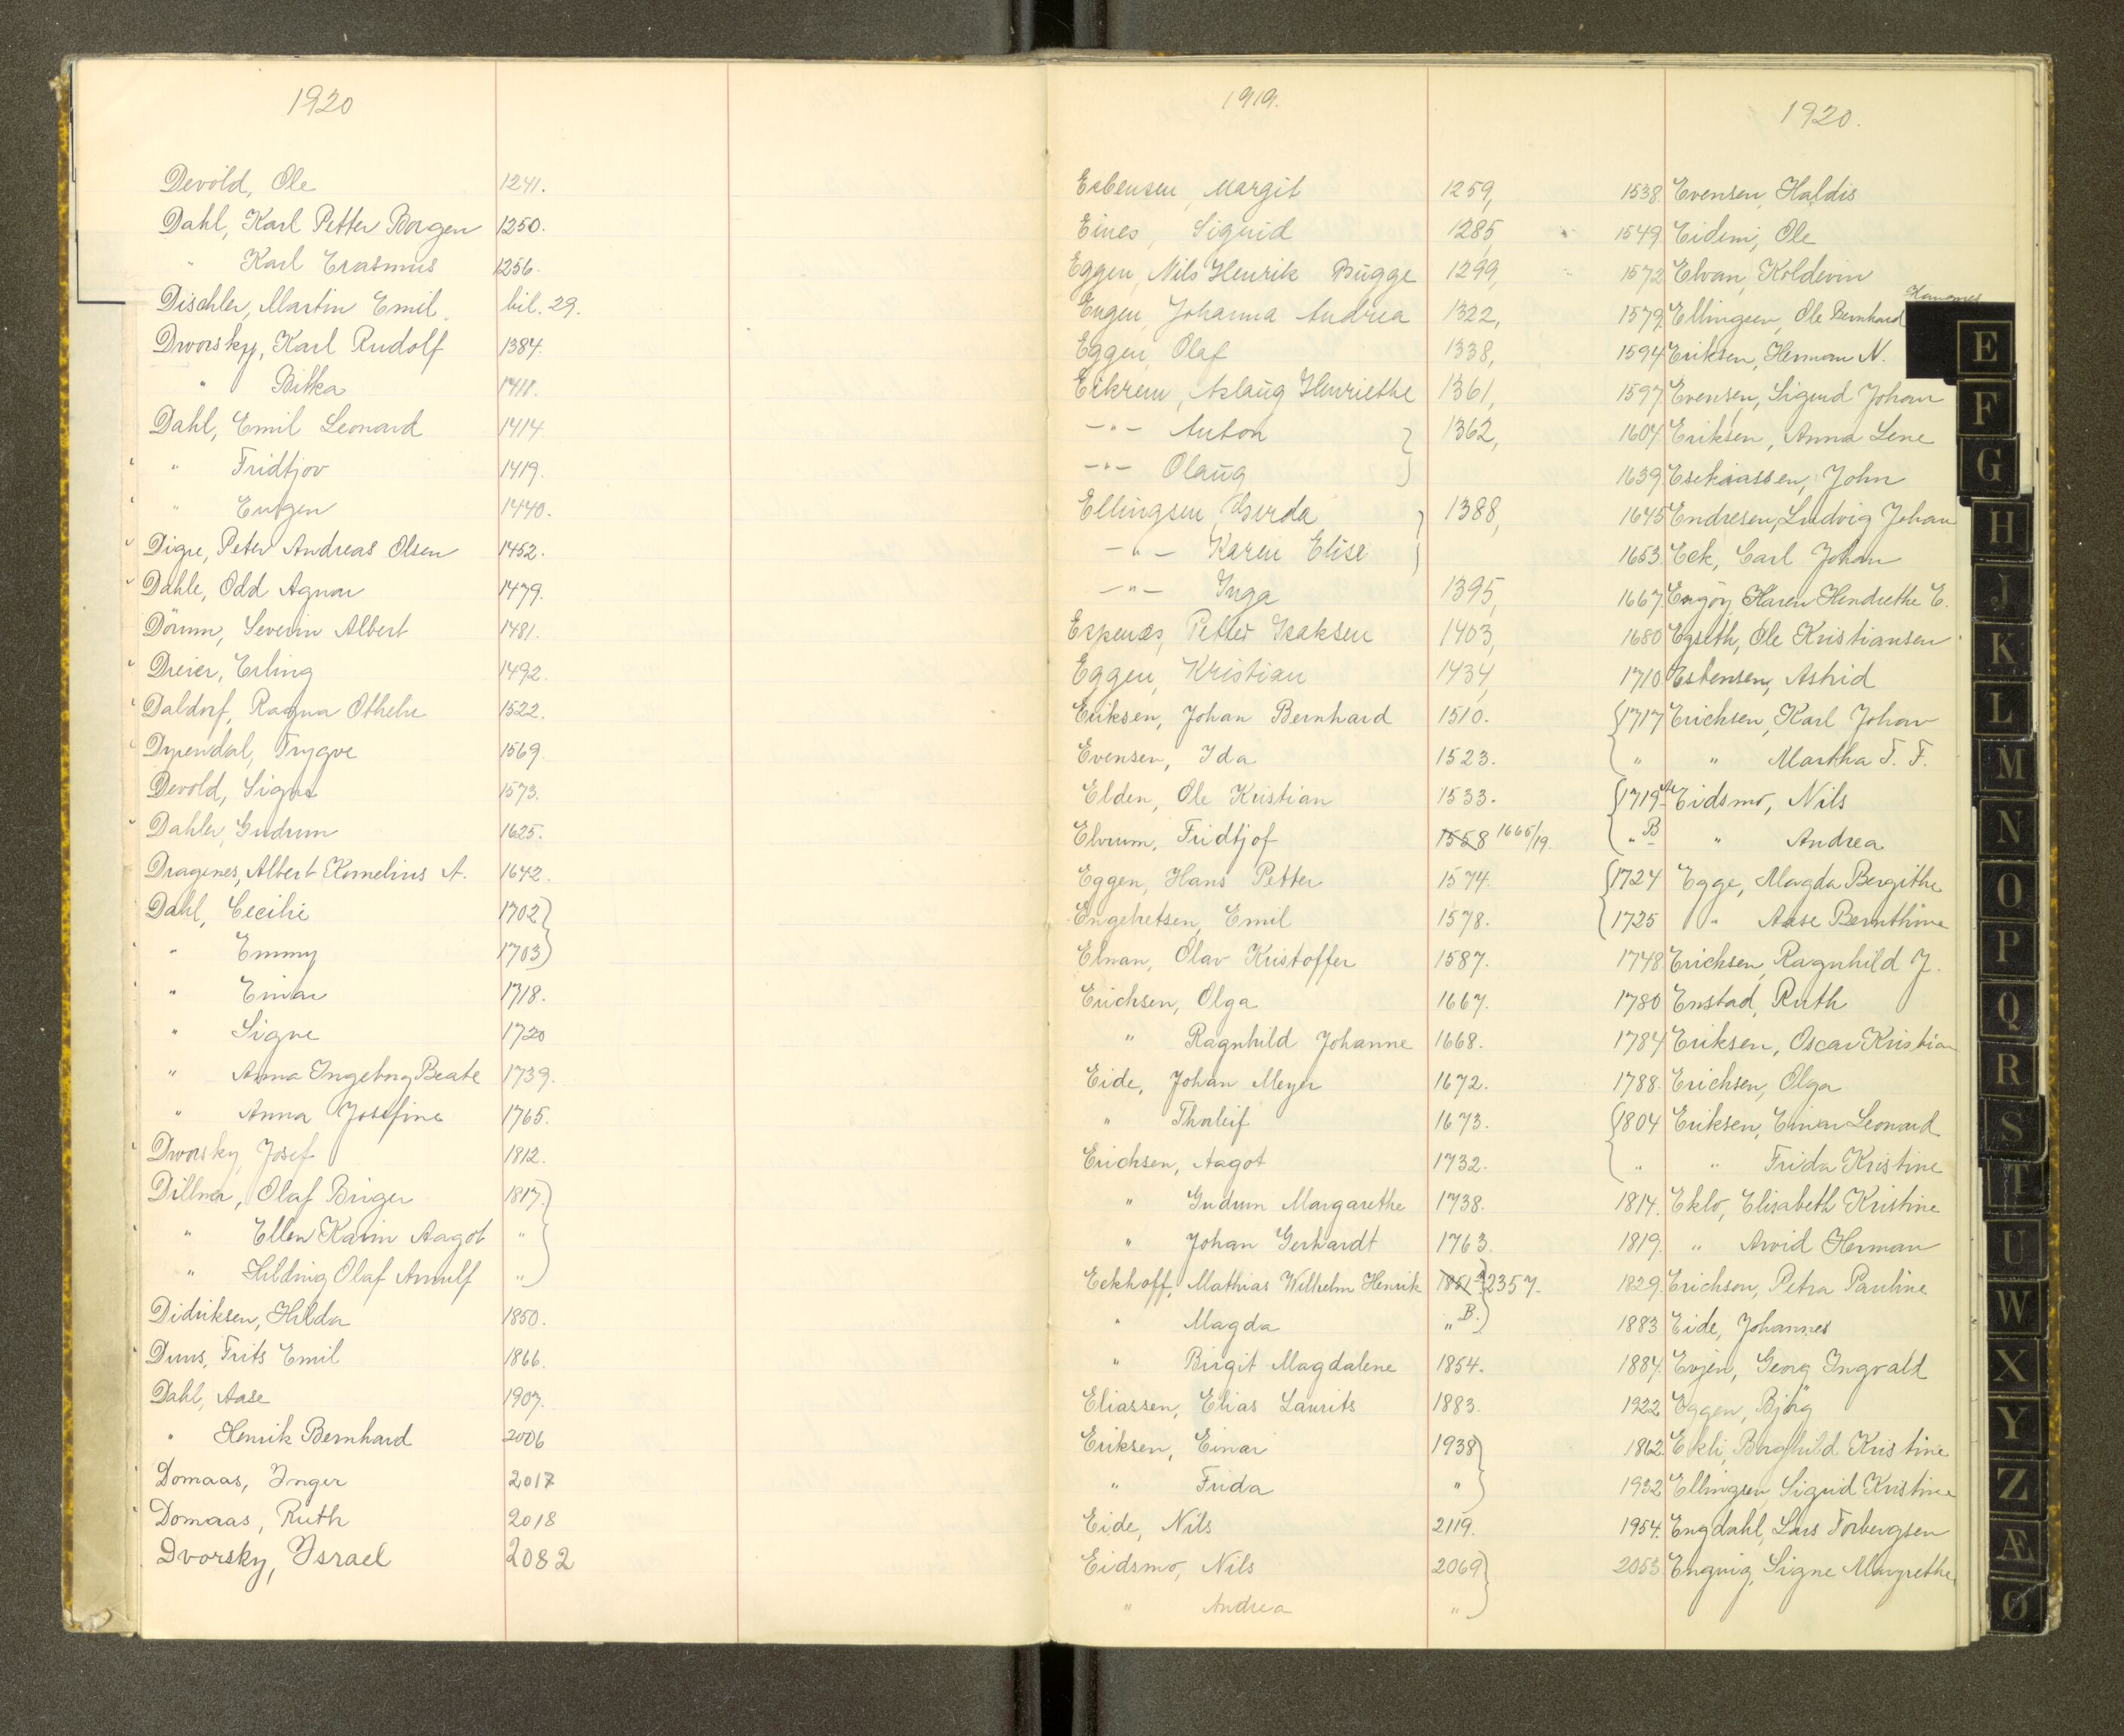 1920
Devold, Ole 1241.
Dahl, Karl Petter Borgen 1250.
" Karl Erasmus 1256.
Dischler, Martin Emil. bil. 29.
Dworsky, Karl Rudolf 1384.
" Bitka 1411.
Dahl, Emil Leonard 1414
" Fridtjov 1419.
" Eugen 1440.
Digre, Peter Andreas Olsen 1452.
Dahle, Odd Agnar 1479.
Dörum, Severin Albert 1481.
Dreier, Erling 1492.
Daldorf, Ragna Othelie 1522.
Dyrendal, Trygve 1569.
Devold, Signe 1573.
Dahler, Gudrun 1625.
Dragsnes, Albert Kornelius A. 1642.
Dahl, Cecilie 1702
" Emmy 1703
" Einar 1718.
" Signe 1720
" Anna Ingeborg Beate 1739.
" Anna Josefine 1765.
Dworsky, Josef 1812.
Dillner, Olaf Birger 1817.
" Ellen Karin Aagot "
" Hilding Olaf Arnulf "
Didriksen, Hilda 1850.
Duus, Frits Emil 1866.
Dahl, Aase 1907.
" Henrik Bernhard 2006
Domaas, Inger 2017
Domaas, Ruth 2018
Dvorsky, Israel 2082
1919.
Esbensen, Margit 1259,
Eines, Sigrid 1285,
Eggen, Nils Henrik Bugge 1299,
Engen, Johanna Andrea 1322,
Eggen, Olaf 1338,
Eikrem, Aslaug Henriethe 1361,
-"- Anton 1362,
-"- Olaug
Ellingsen, Gerda 1388,
-"- Karen Elise
-"- Inga 1395,
Espenes, Petter Isaksen 1403,
Eggen, Kristian 1434,
Eriksen, Johan Bernhard 1510.
Evensen, Ida 1523.
Elden, Ole Kristian 1533.
Elvrum, Fridtjof 1558 1665/19.
Eggen, Hans Petter 1574.
Engebretsen, Emil 1578.
Elnan, Olav Kristoffer 1587.
Erichsen, Olga 1667.
" Ragnhild Johanne 1668.
Eide, Johan Meyer 1672.
" Thorleif 1673.
Erichsen, Aagot 1732.
" Gudrun Margarethe 1738.
" Johan Gerhardt 1763.
Eckhoff, Mathias Wilhelm Henrik 1851 A 2357.
" Magda " B.
" Birgit Magdalene 1854.
Eliassen, Elias Laurits 1883.
Eriksen, Einar 1938
" Frida "
Eide, Nils 2119.
Eidsmo, Nils 2069
" Andrea "
1920.
1538. Evensen, Haldis
1549. Eidem, Ole
1572 Elvan, Koldevin
1579. Ellingsen, Ole Bernhard
1594 Eriksen, Herman N.
1597 Evensen, Sigurd Johan
1604 Eriksen, Anna Lene
1639 Esekiassen, John
1645 Endresen, Ludvig Johan
1653. Eck, Carl Johan
1667. Engöy Karen Hendrethe E.
1680 Egseth, Ole Kristiansen
1710 Estensen, Astrid
1717 Erichsen, Karl Johan
" " Martha T. F.
1719 A Eidsmo, Nils
" B " Andrea
1724 Egge, Magda Bergithe
1725 " Aase Bernthine
1748 Erichsen, Ragnhild J.
1780 Enstad, Ruth
1784 Eriksen, Oscar Kristian
1788. Erichsen, Olga
1804 Eriksen, Einar Leonard
" " Frida Kristine
1814. Eklo, Elisabeth Kristine
1819. " Arvid Herman
1829. Erichson, Petra Pauline
1883 Eide, Johannes
1884. Evjen, Georg Ingvald
1922 Eggen, Björg
1862 Ekli, Borghild Kristine
1932 Ellingsen, Sigrid Kristine
1954. Engdahl, Lars Torbergsen
2053 Engvig, Signe Margrethe
E
F
G
H
J
K
L
M
N
O
P
Q
R
S
T
U
W
X
Y
Z
Æ
Ø